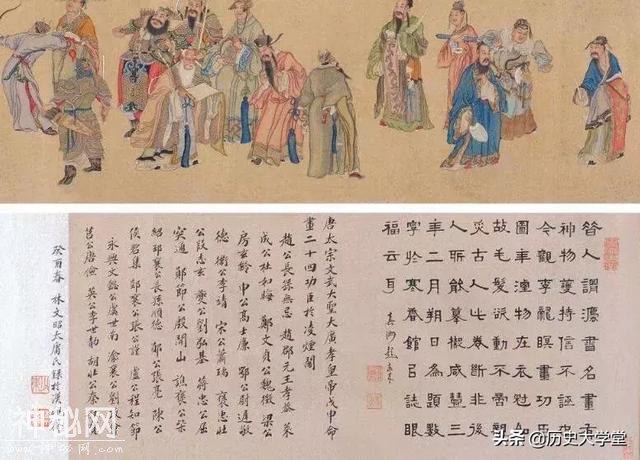 昔人謂灋書名畫有
神物護持信不誣也
今觀李龍瞑畫功臣
圖年湮物在衣冠如
故毛髮派動不啻
古人此卷斷非後
人所能摹擬咸豐三
年二月朔日為題數
字於寒香館㠯誌眼
福云耳
真洲
唐太宗文武大聖大廣孝皇帝戊申命
畫二十四功臣於凌煙閣
趙公長孫無忌 趙郡元王孝恭 萊
成公杜如晦 鄭文貞公魏徵 梁公
房玄齡 申公高士廉 鄂公尉遲敬
德 衛公李靖 宋公蕭瑀 褒忠壯
公段志玄 夔公劉弘基 蔣忠公屈
突通 鄖節公殷開山 譙襄公柴
紹 邳襄公長孫順德 鄖公張亮 陳公
侯君集 郯襄公張公謹 盧公程知節
永興文懿公虞世南 渝襄公劉
莒公唐儉 英公李世勣 胡壯公秦
癸酉春 林文昭太庸氏錄於漢
神秘网
头条 @历史大学堂